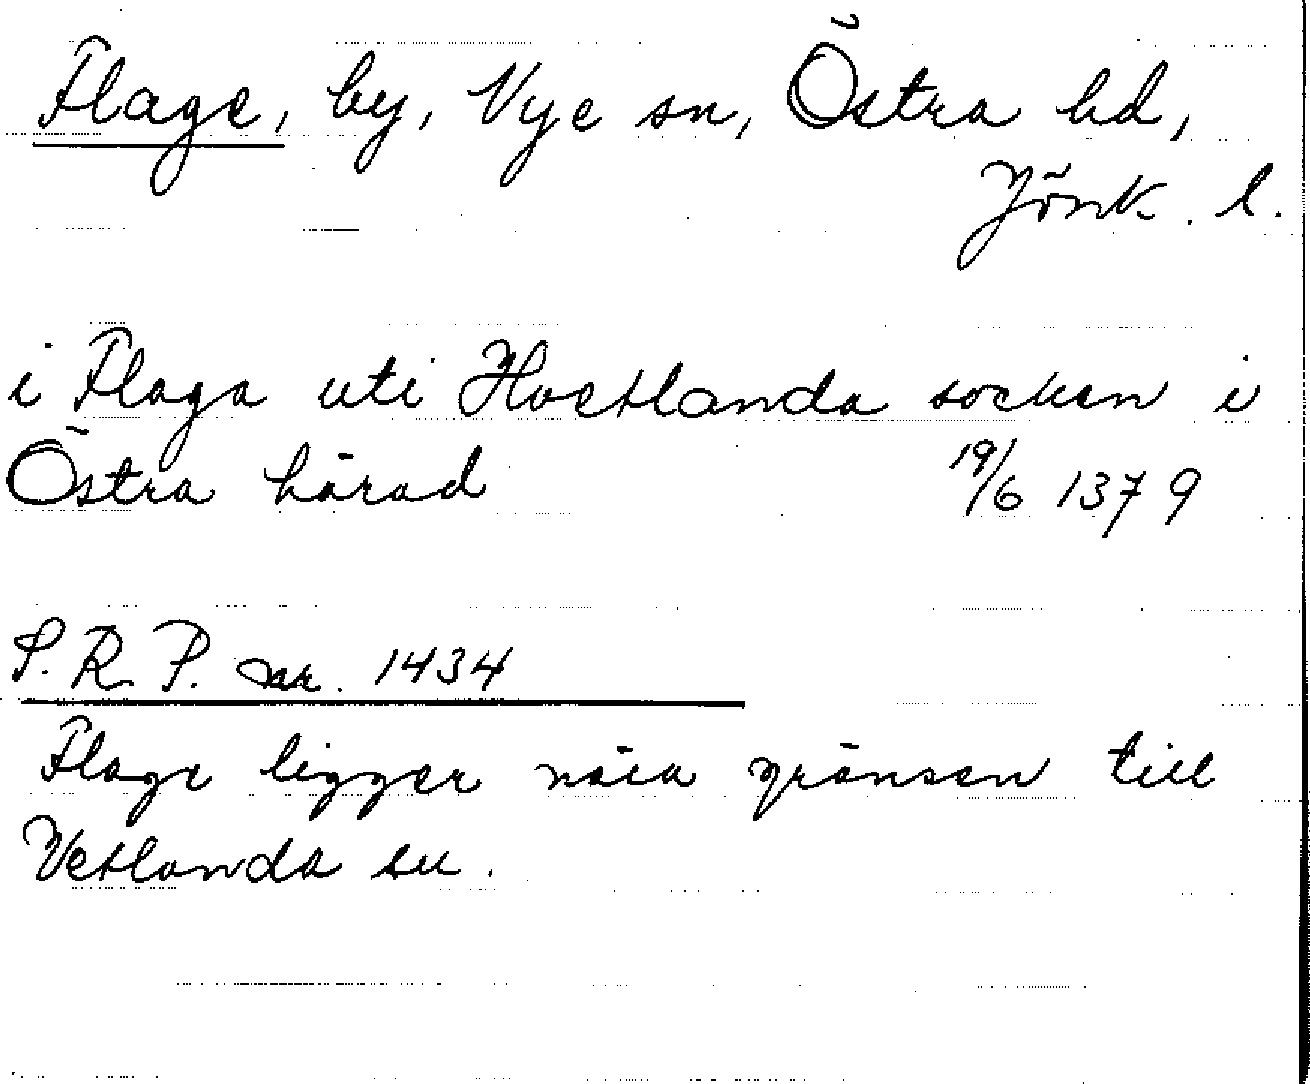 Flage, by, Nye sn, Östra hd,
Jönk. l.
i Flaga uti Hvetlanda socken i
Östra härad 19/6 1379
S. R. P. nr. 1434
Flage ligger nära gränsen till
Vetlanda sn.